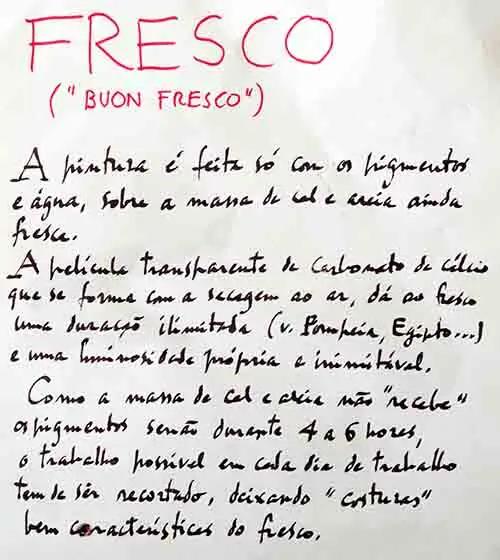 FRESCO
("BUON FRESCO")
A pintura é feita só com os pigmentos
e água, sobre a massa de cal e areia ainda
fresca.
A película transparente de carbonato de cálcio
que se forma com a secagem ao ar, dá ao fresco
uma duração ilimitada (v. Pompeia, Egipto...)
e uma luminosidade própria e inimitável.
Como a massa de cal e areia não "recebe"
os pigmentos senão durante 4 a 6 horas,
o trabalho possível em cada dia de trabalho
tem de ser recortado, deixando "costuras"
bem características do fresco.